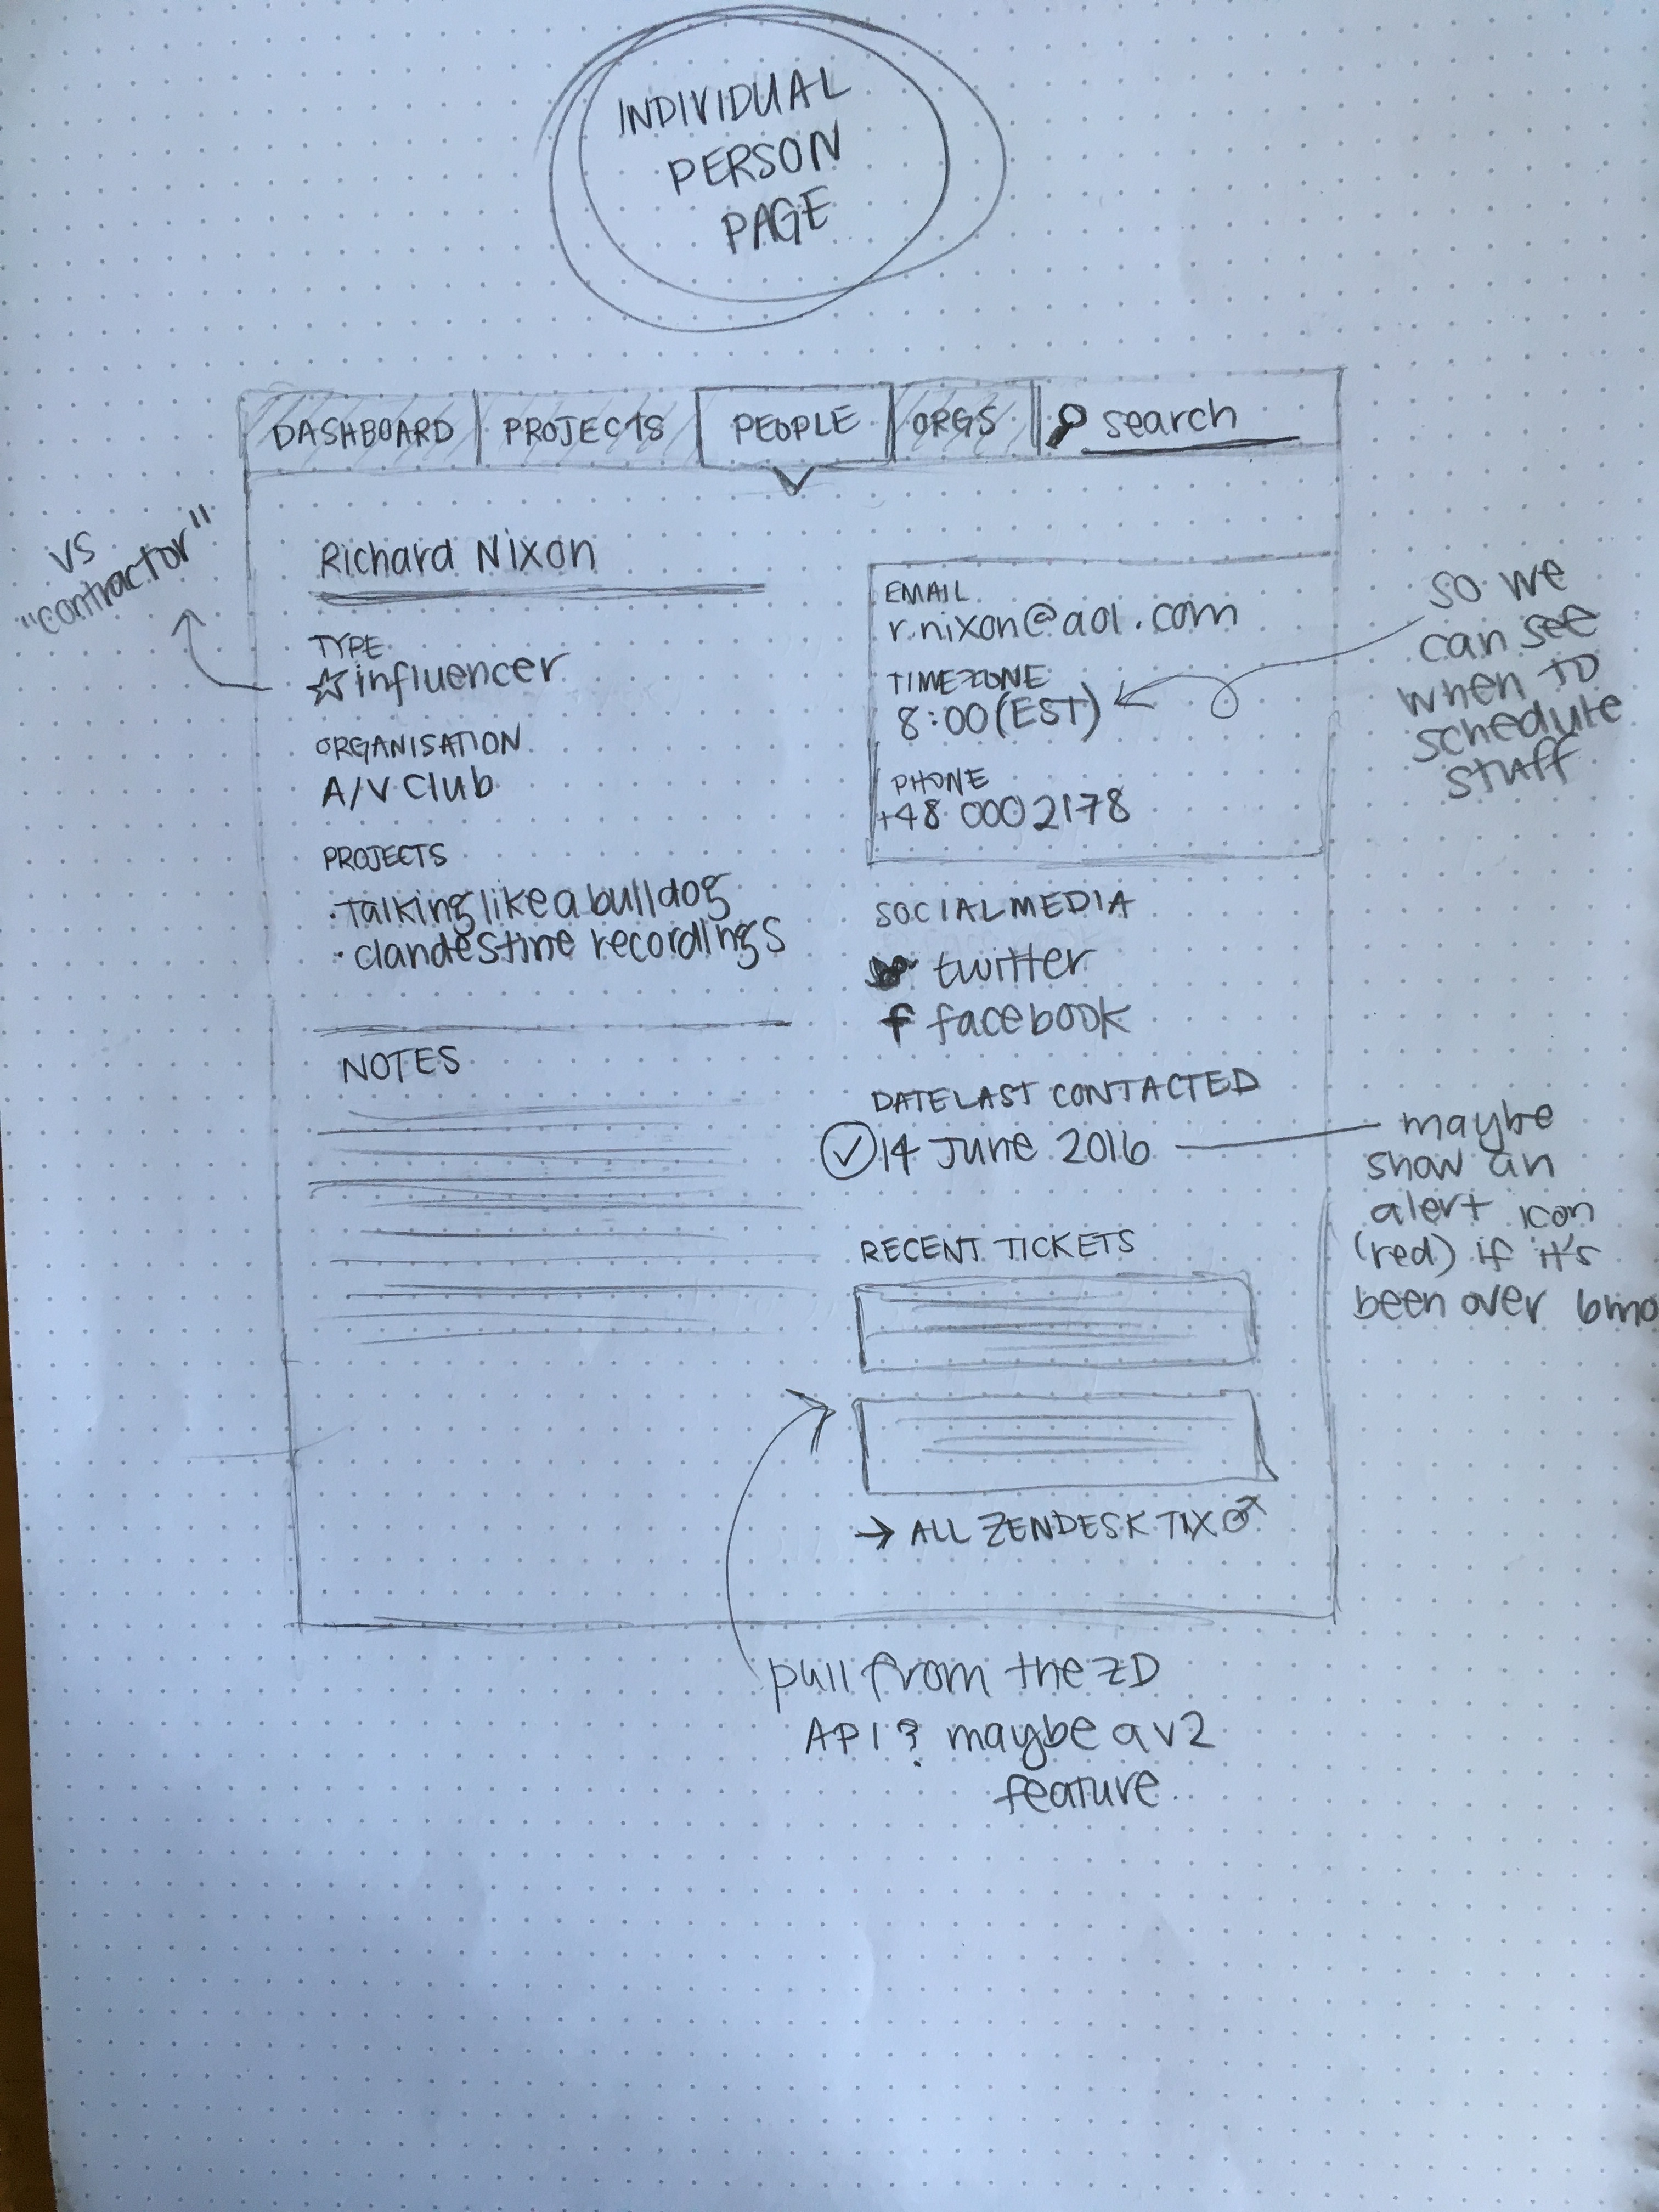 INDIVIDUAL
PERSON
PAGE
DASHBOARD
PROJECTS
PEOPLE
ORGS
search
vs
"contractor"
Richard Nixon
TYPE
influencer
ORGANISATION
A/V Club
PROJECTS
· Talking like a bulldog
· clandestine recordings
NOTES
EMAIL
r.nixon@aol.com
TIMEZONE
8:00 (EST)
PHONE
+48 000 2178
so we
can see
when to
schedule
stuff
SOCIAL MEDIA
twitter
f facebook
DATE LAST CONTACTED
14 June 2016
maybe
show an
alert icon
(red) if it's
been over 6mo
RECENT TICKETS
→ ALL ZENDESK TIX
pull from the ZD
API? maybe a v2
feature..